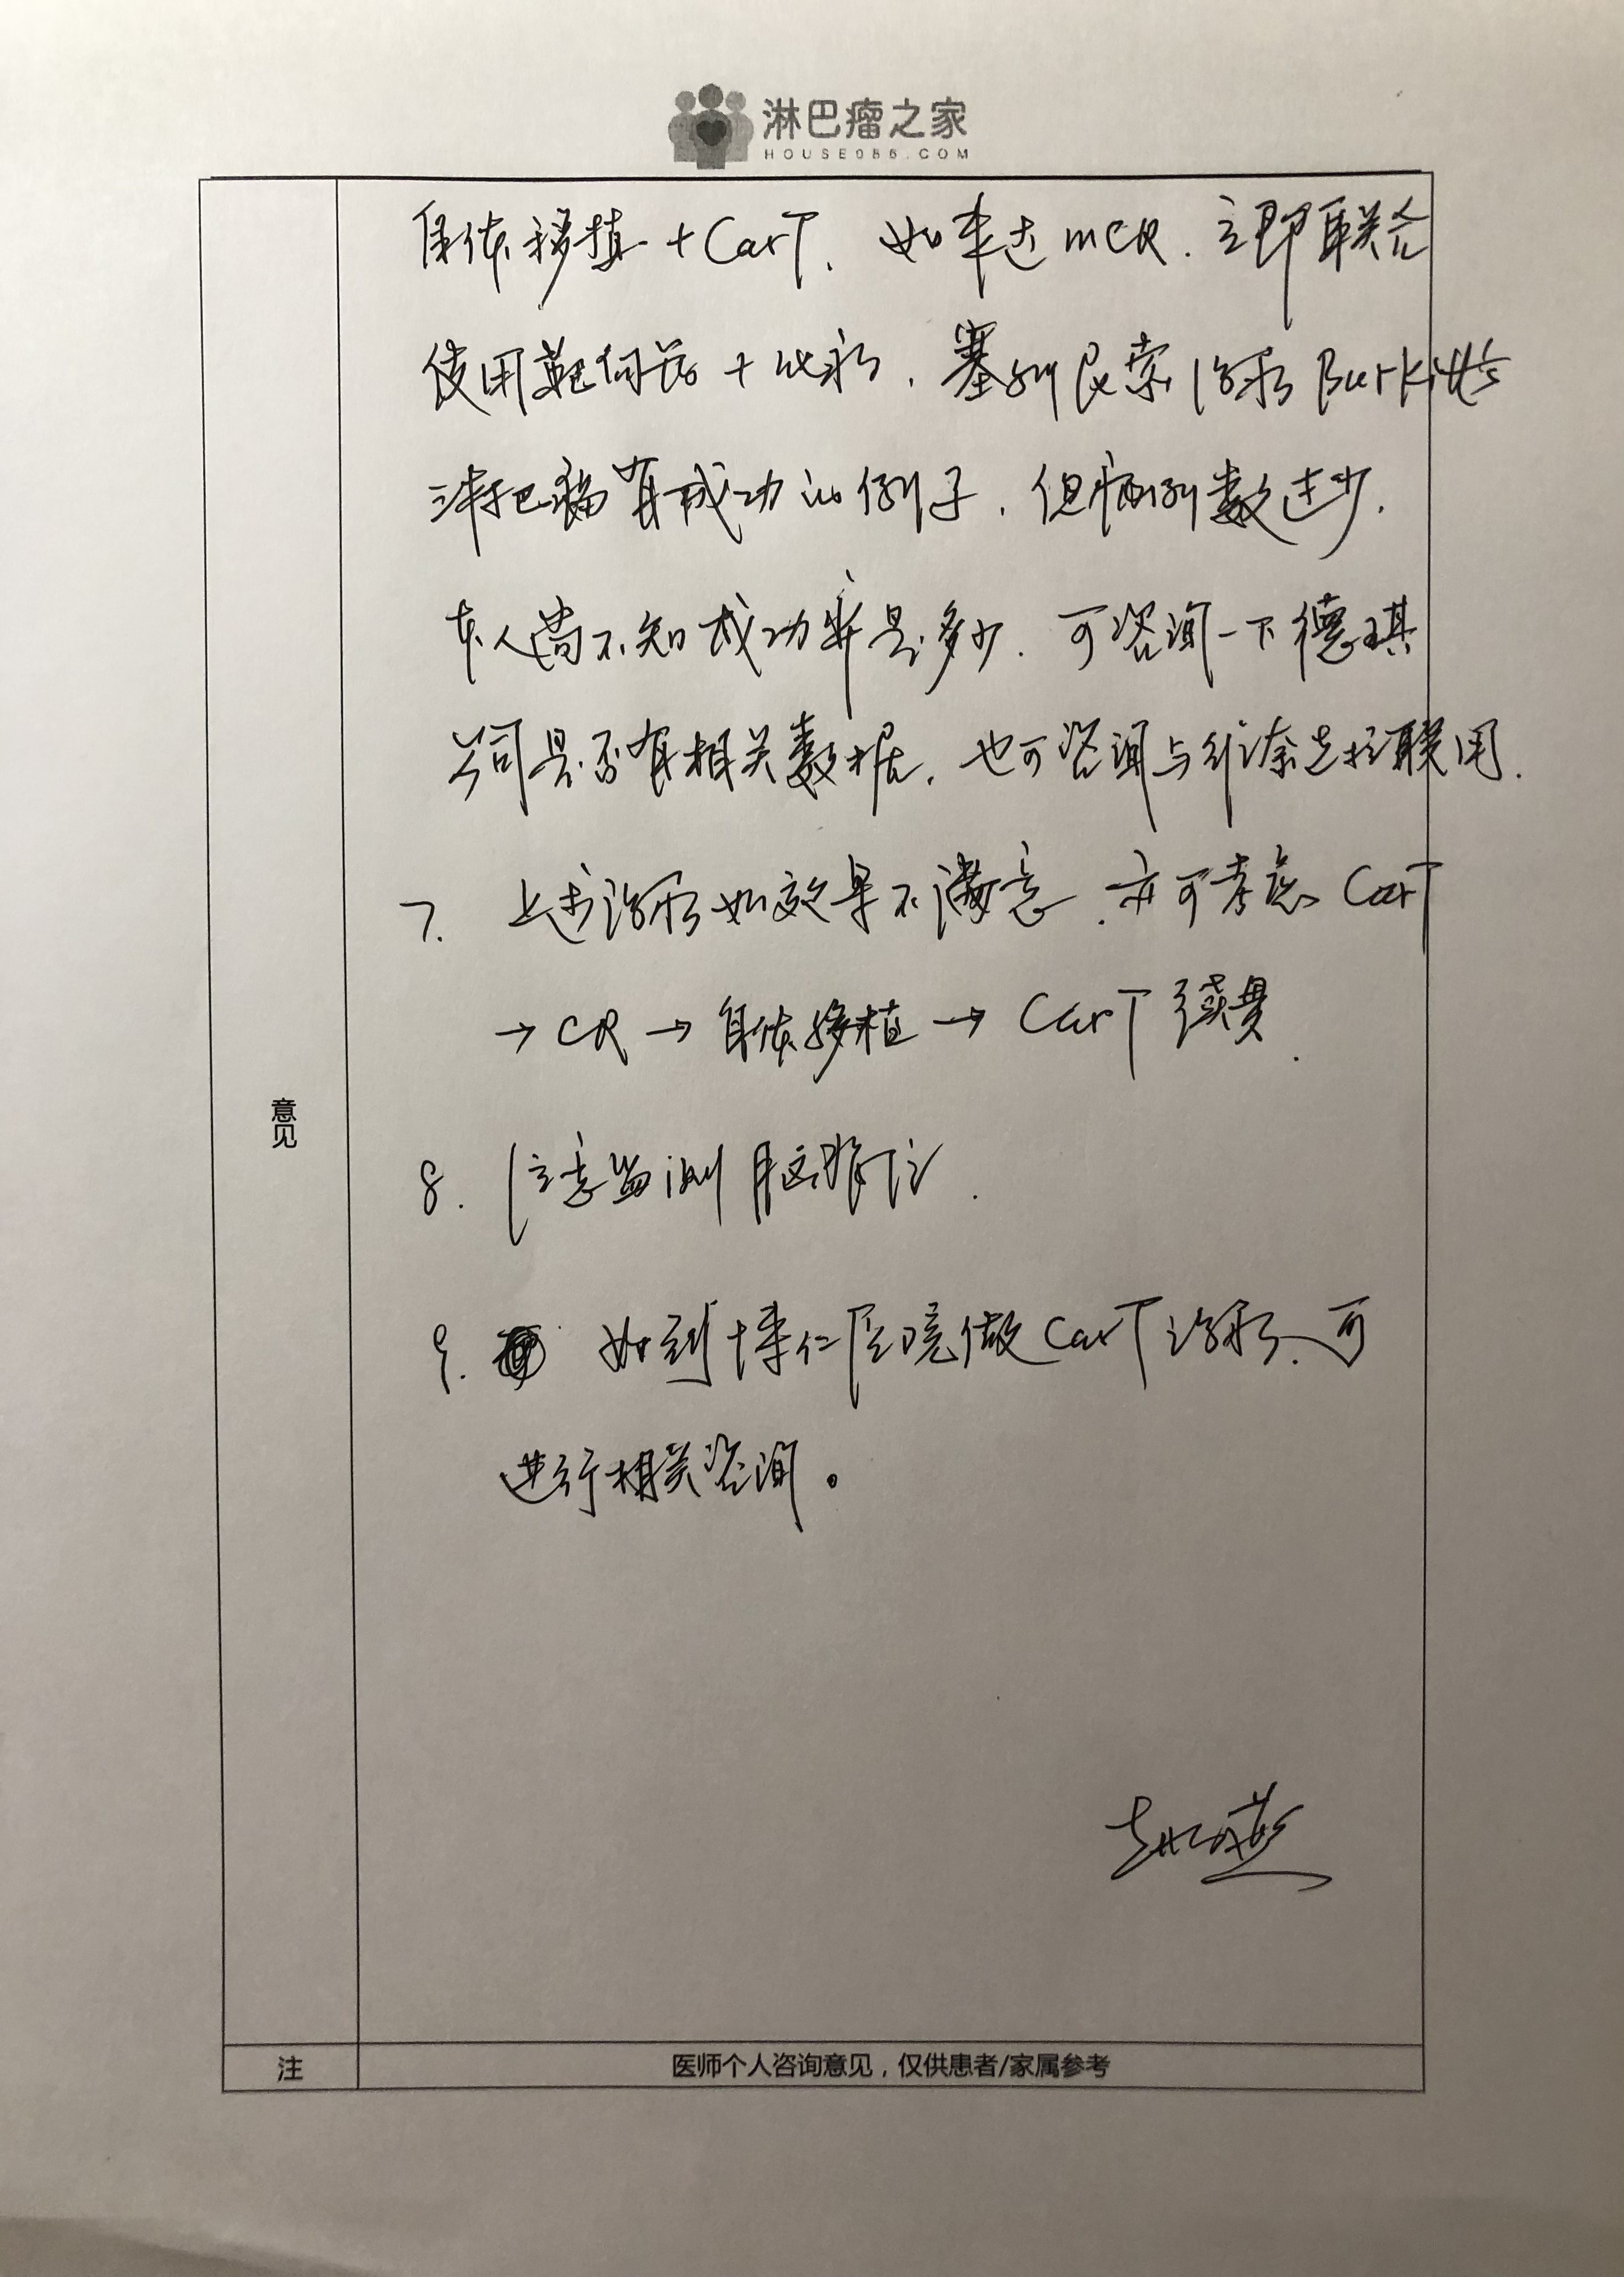 淋巴瘤之家
HOUSE086.COM
自体移植+CarT. 如未达mCR. 立即联合
使用靶向药+化疗. 塞利尼索治疗Burkitt's
淋巴瘤有成功的例子. 但病例数过少.
本人尚不知成功率是多少. 可咨询一下德琪
公司是否有相关数据. 也可咨询与维奈克拉联用.
7. 上述治疗如效果不满意. 亦可考虑CarT
→CR→自体移植→CarT
8. 注意监测脑脊液.
9. 如到博仁医院做CarT治疗. 可
进行相关咨询。
意见
注 医师个人咨询意见，仅供患者/家属参考